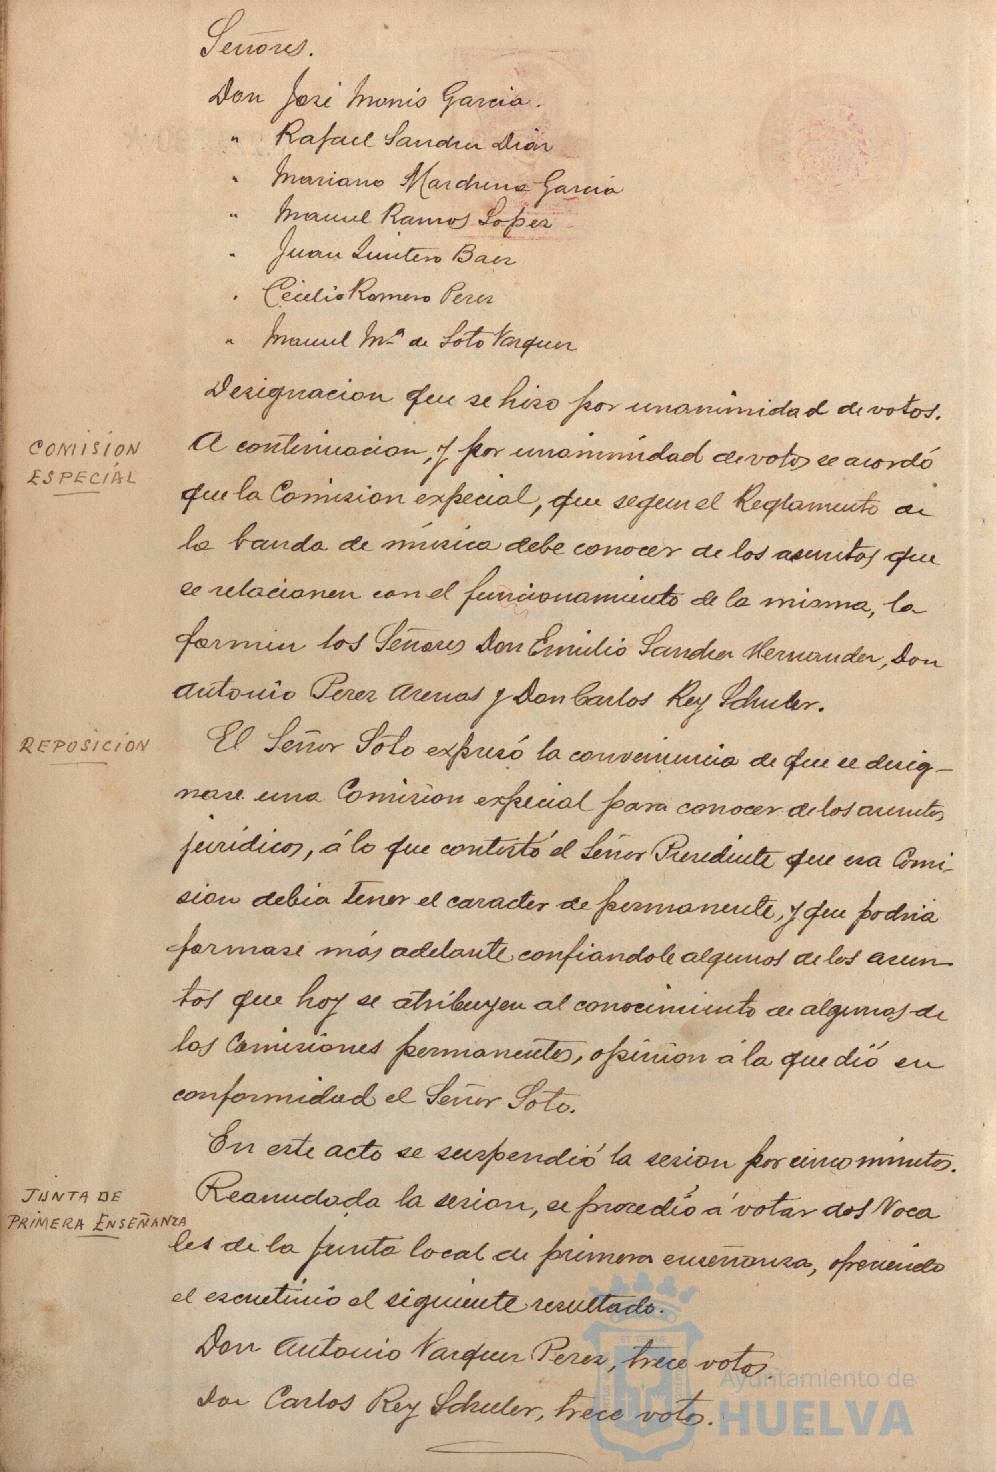 Señores.
Don José Monis Garcia.
" Rafael Sanchez Diaz
" Mariano Marchena Garcia
" Manuel Ramos Lopez
" Juan Quintero Baez
" Cecilio Romero Perez
" Manuel Mª de Soto Vazquez
Designacion que se hizo por unanimidad de votos.
COMISION
ESPECIÁL
A continuacion, y por unanimidad de votos se acordó
que la Comision especial, que segun el Reglamento de
la banda de música debe conocer de los asuntos que
se relacionen con el funcionamiento de la misma, la
formen los Señores Don Emilio Sanchez Hernandez, Don
Antonio Perez Arenas y Don Carlos Rey Schuler.
REPOSICIÓN
El Señor Soto expresó la conveniencia de que se desig-
nase una Comision especial para conocer de los asuntos
jurídicos, á lo que contestó el Señor Presidente que esa Comi-
sion debia tener el caracter de permanente, y que podria
formarse más adelante confiandole algunos de los asun-
tos que hoy se atribuyen al conocimiento de algunas de
las Comisiones permanentes, opinion á la que dió su
conformidad el Señor Soto.
En este acto se suspendió la sesion por cinco minutos.
JUNTA DE
PRIMERA ENSEÑANZA
Reanudada la sesion, se procedió á votar dos Voca
les de la Junta local de primera enseñanza, ofreciendo
el escrutinio el siguiente resultado.
Don Antonio Vazquez Perez, trece votos.
Don Carlos Rey Schuler, trece votos.
Ayuntamiento de
HUELVA